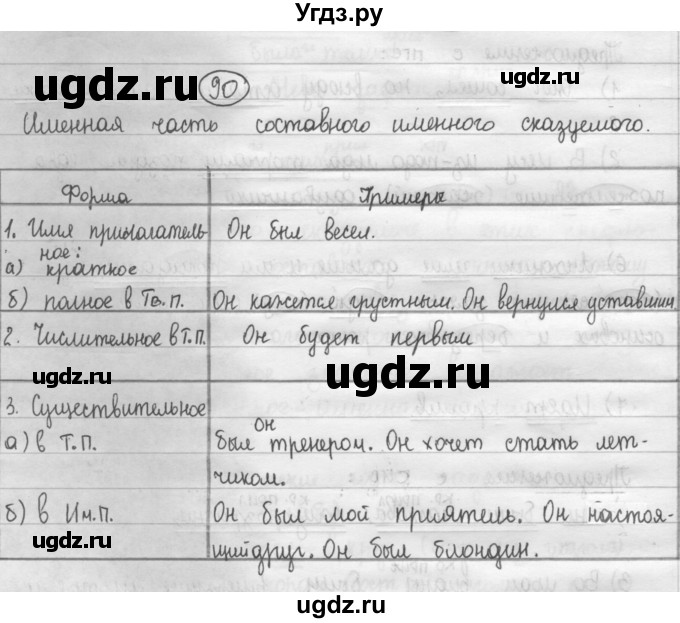 Угдз.ру
ugdz.ru 90 ugdz.ru
Именная часть составного именного сказуемого.
ugdz.ru ugdz.ru
Форма Примеры
1. Имя прилагатель Он был весел.
ное:
а) краткое
б) полное в Тв. П. Он кажется грустным. Он вернулся уставшим.
2. Числительное в Т.П. Он будет первым
ugdz.ru ugdz.ru
3. Существительное
а) в Т.П. он был тренером. Он хочет стать лет-
чиком.
б) в Им.П. Он был мой приятель. Он настоя-
ugdz.ru щий друг. Он был блондин. ugdz.ru
ugdz.ru